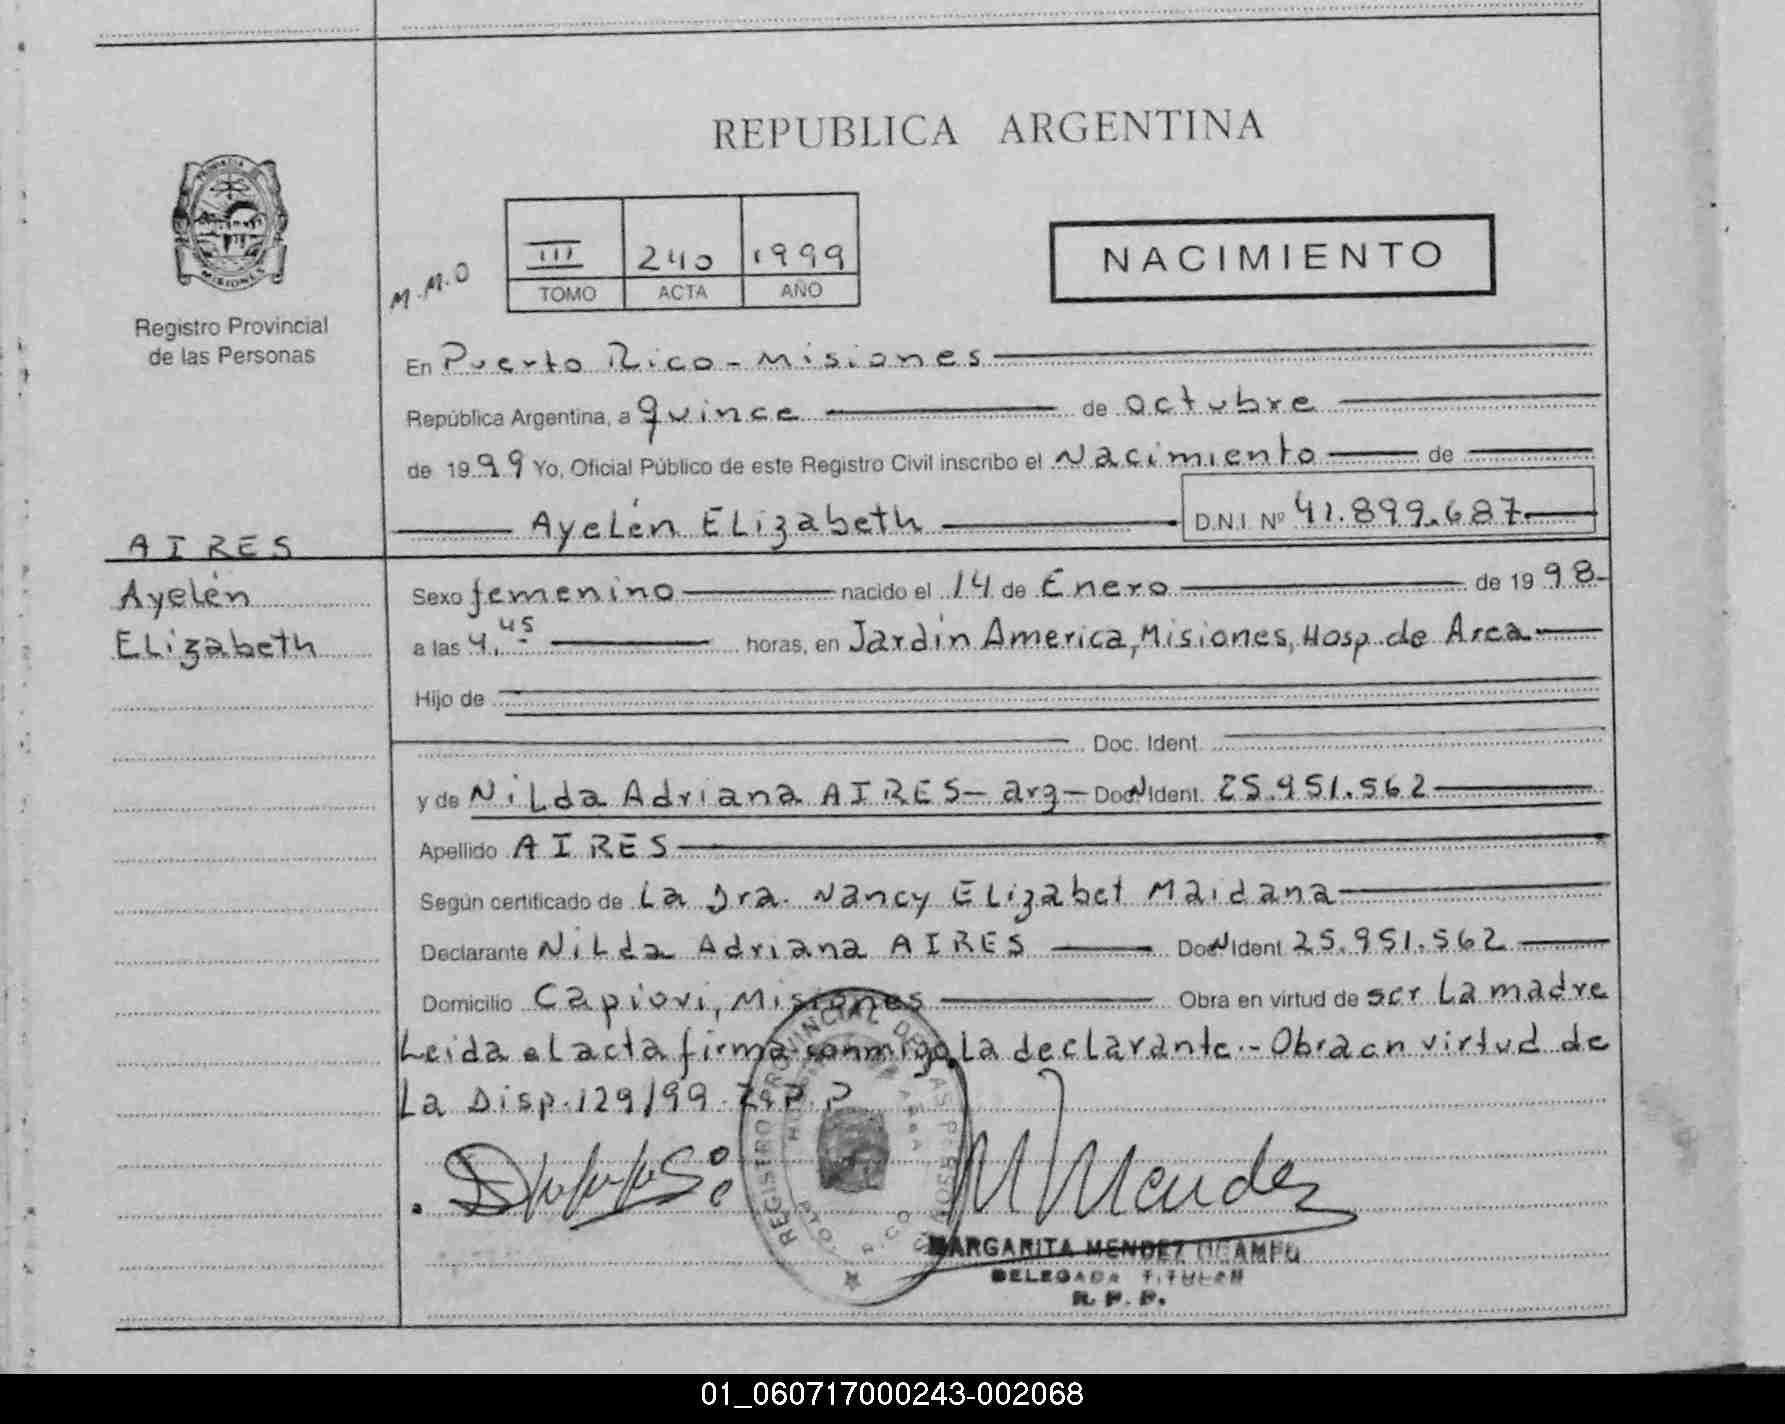 REPUBLICA ARGENTINA
III 240 1999
TOMO ACTA AÑO
M.M.O
NACIMIENTO
PROVINCIA
MISIONES
Registro Provincial
de las Personas
En Puerto Rico - Misiones
República Argentina, a quince de octubre
de 1999 Yo, Oficial Público de este Registro Civil inscribo el Nacimiento de
Ayelén ELizabeth D.N.I. Nº 41.899.687
AIRES
Ayelén
ELizabeth
Sexo femenino nacido el 14 de Enero de 1998-
a las 4,45 horas, en Jardin America, Misiones, Hosp. de Area
Hijo de
Doc. Ident.
y de NiLda Adriana AIRES - arg - Doc N Ident. 25.951.562
Apellido AIRES
Según certificado de La Dra. Nancy ELizabet Maidana
Declarante NiLda Adriana AIRES Doc N Ident 25.951.562
Domicilio Capiovi, Misiones Obra en virtud de ser La madre
Leida el acta firma conmigo La declarante.- Obra en virtud de
La Disp. 129/99
REGISTRO PROVINCIAL DE LAS PERSONAS
M Mendez
MARGARITA MENDEZ OCAMPO
DELEGADA TITULAR
R. P. P.
01_060717000243-002068